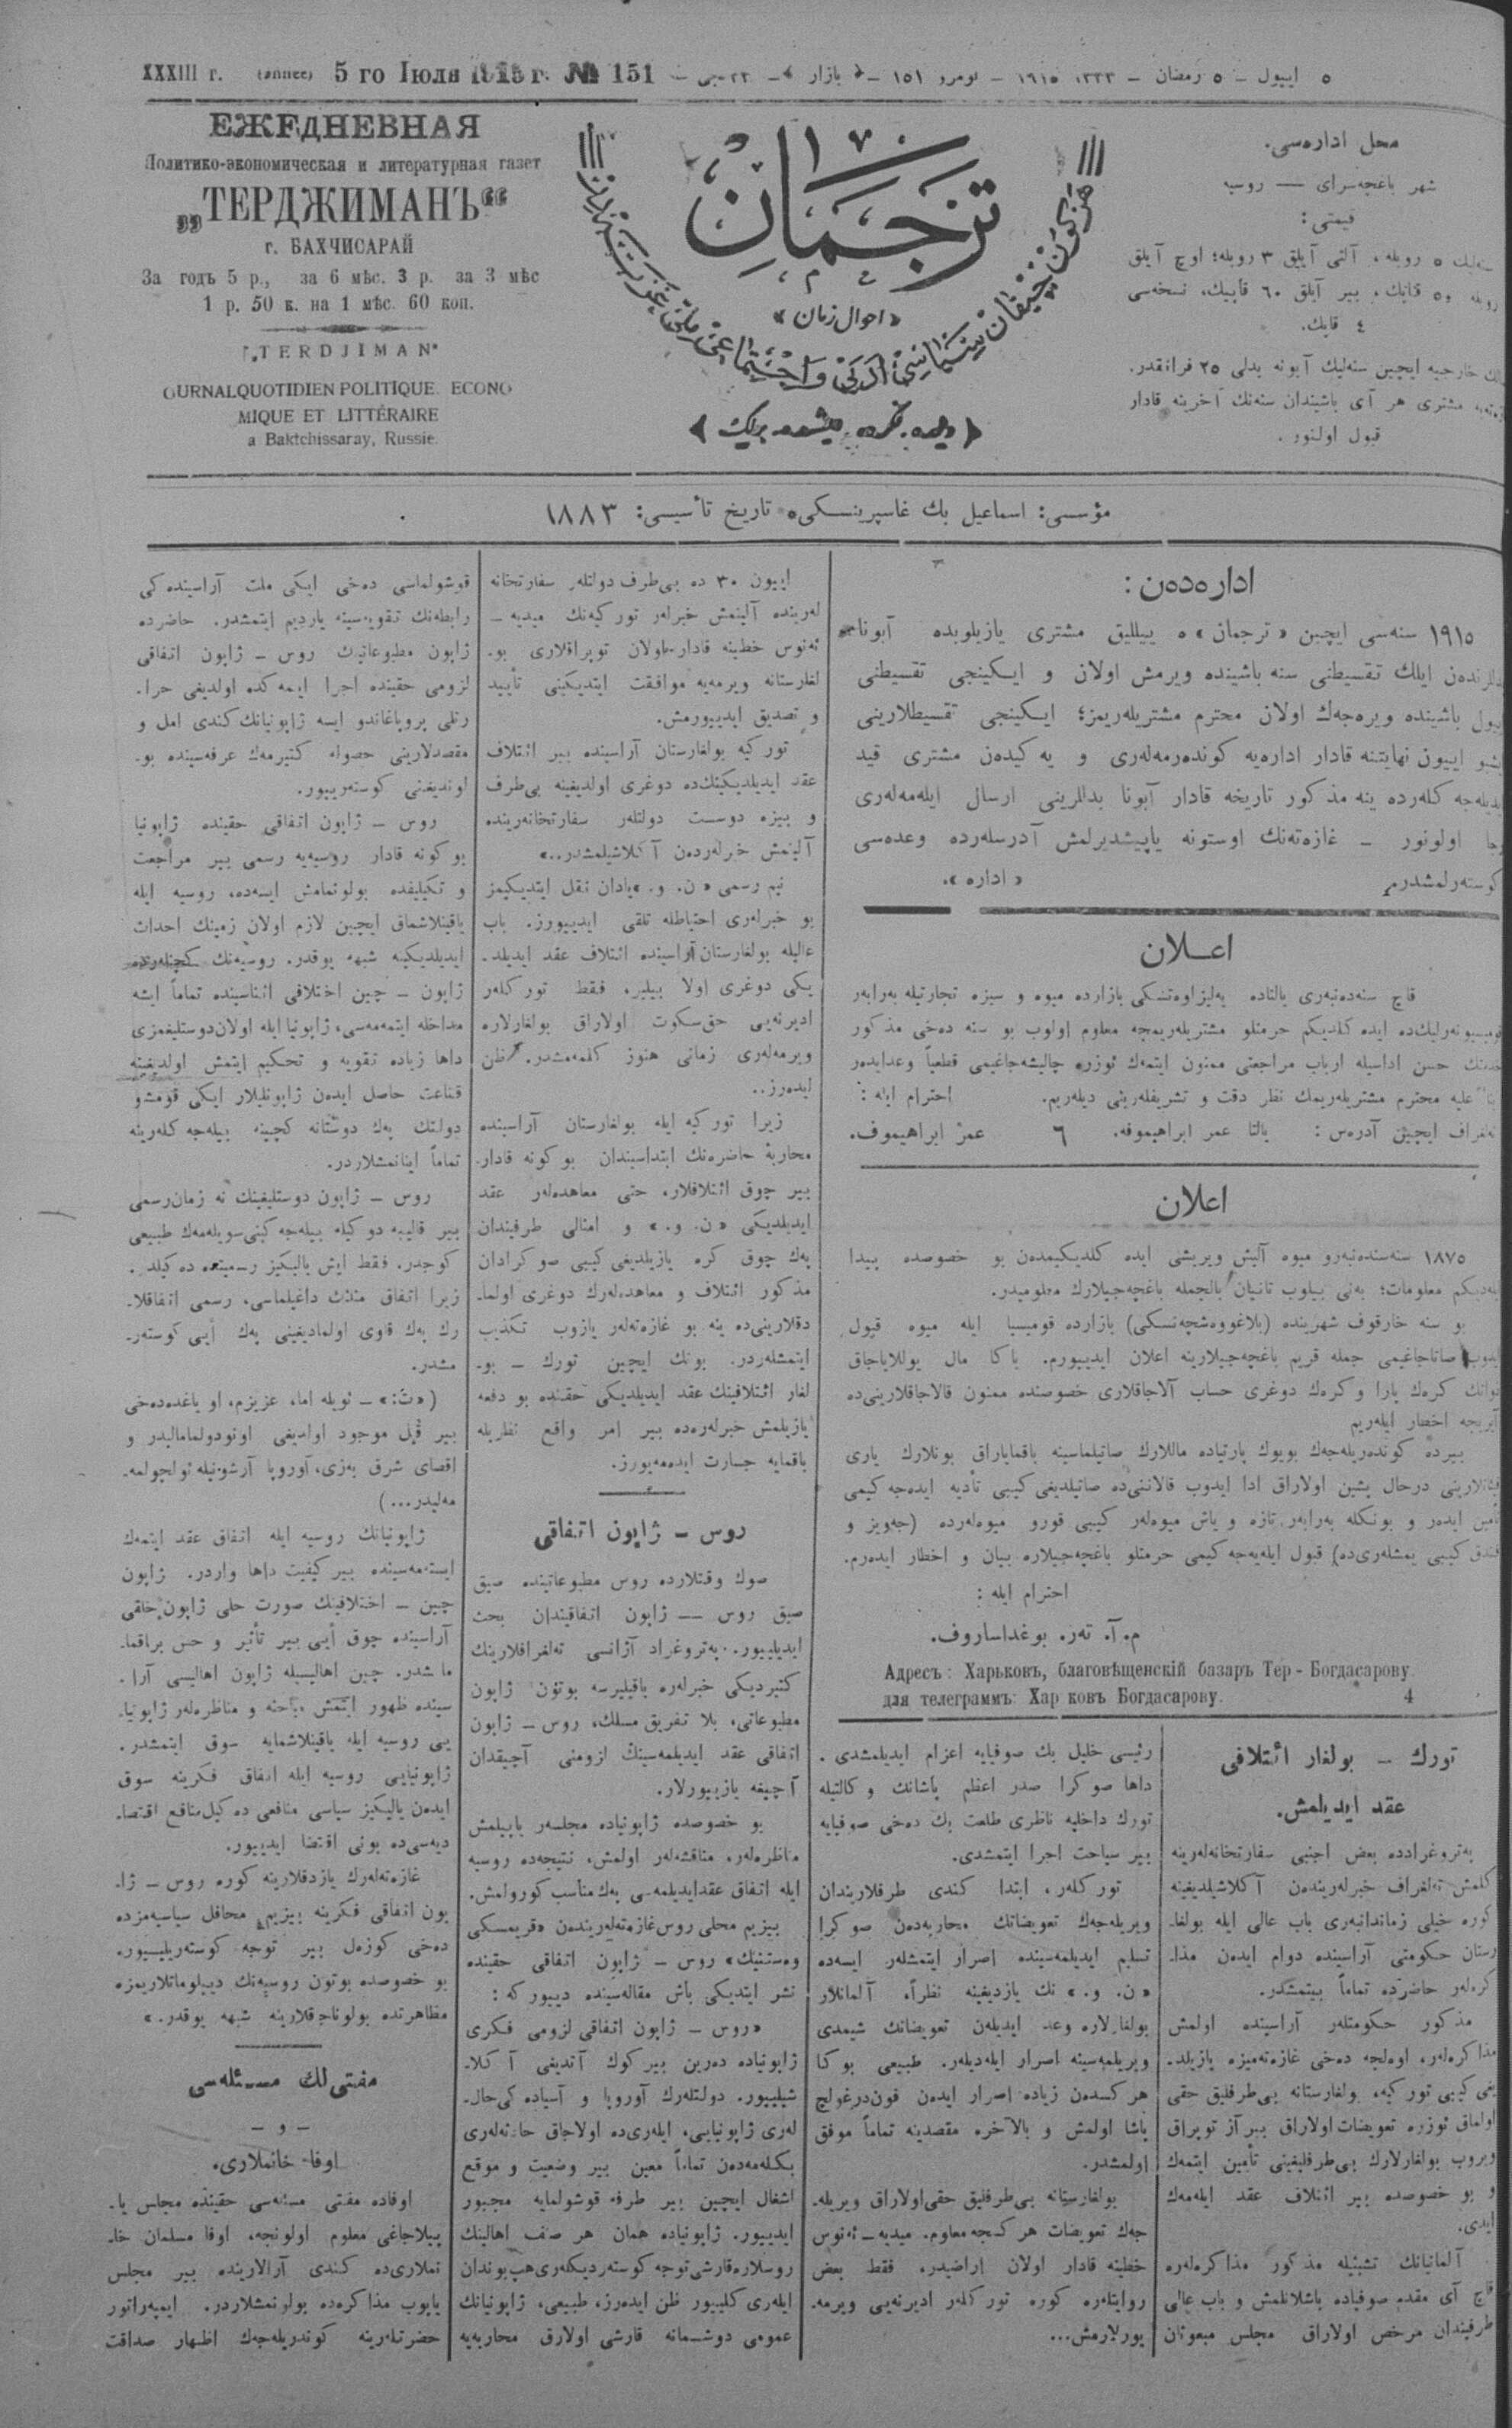 XXXIII г. (année) 5 го Іюля 1915 г. № 151
٥ اييول – ٥ رمضان – ١٣٣٣، ١٩١٥ – نومرو ١٥١ – ﴿ بازار ﴾ – ٣٣ نجی –
ЕЖЕДНЕВНАЯ
Политико-экономическая и литературная газет
„ТЕРДЖИМАНЪ“
г. БАХЧИСАРАЙ
За годъ 5 р., за 6 мѣс. 3 р. за 3 мѣс
1 р. 50 к. на 1 мѣс. 60 коп.
„TERDJIMAN“
OURNAL QUOTIDIEN POLITIQUE. ECONO
MIQUE ET LITTÉRAIRE
a Baktchissaray, Russie.
ترجمان
«احوال زمان»
محل اداره‌سی.
شهر باغچه‌سرای — روسیه
قیمتی:
سنه‌لیك ٥ روبله، آلتی آیلق ٣ روبله؛ اوچ آیلق
روبله ٥٠ قاپك، بیر آیلق ٦٠ قاپیك، نسخه‌سی
٤ قاپك.
خارجیه ایچین سنه‌لیك آبونه بدلی ٢٥ فرانقدر.
مشتری هر آی باشیندان سنه‌نك آخرینه قادار
قبول اولنور.
مؤسسی: اسماعیل بك غاسپرینسكی. تاریخ تأسیسی: ١٨٨٣
اداره‌دەن:
١٩١٥ سنه‌سی ایچین «ترجمان» ە ییللیق مشتری یازیلوبده آبونا
بدللرندەن ایلك تقسیطنی سنه باشینده ویرمش اولان و ایكینجی تقسیطنی
اییول باشینده ویرەجەك اولان محترم مشتریلەریمز؛ ایكینجی تقسیطلارینی
اشبو اییون نهایتنه قادار ادارەیه كوندەرمەلەری و یەكیدەن مشتری قید
ایدیلەجەكلەردە ینه مذكور تاریخه قادار آبونا بدللرینی ارسال ایلەمەلەری
رجا اولونور – غازەتەنك اوستونه یاپیشدیرلمش آدرسلەردە وعدەسی
كوستەرلمشدر. «اداره».
اعـــلان
قاچ سنەدەنبەری یالتاده یەلیزاوەتنسكی بازارده میوه و سبزه تجارتیله بەرابەر
قومیسیونەرلیك‌ده ایده كلدیكم حرمتلو مشتریلەریمجه معلوم اولوب بو سنه دەخی مذكور
خدمتك حسن اداسیله ارباب مراجعتی ممنون ایتمەك ئوزره چالیشەجاغیمی قطعیاً وعدایدەر
بناً علیه محترم مشتریلەریمك نظر دقت و تشریفلەرینی دیلەریم. احترام ایله:
تەلغراف ایچین آدرەس: یالتا عمر ابراهیموفه. ٦ عمر ابراهیموف.
اعلان
١٨٧٥ سنەسندەنبەرو میوه آلیش ویریشی ایده كلدیكیمدەن بو خصوصده پیدا
ایلەدیكم معلومات؛ بەنی بیلوب تانیان بالجمله باغچەجیلارك معلومیدر.
بو سنه خارقوف شهرینده (بلاغووەشچەنسكی) بازارده قومیسیا ایله میوه قبول
ایدوب صاتاجاغیمی جمله قریم باغچەجیلارینه اعلان ایدییورم. باكا مال یوللایاجاق
ذواتك كرەك پارا و كرەك دوغری حساب آلاجاقلاری خصوصنده ممنون قالاجاقلارینی‌ده
آیریجه اخطار ایلەریم
بیردە كوندەریلەجەك بویوك پارتیاده ماللارك صاتیلماسینه باقمایاراق بونلارك یاری
فیئتلارینی درحال پشین اولاراق ادا ایدوب قالاننی‌ده صاتیلدیغی كیبی تأدیه ایدەجەكیمی
تأمین ایدەر و بونكله بەرابەر تازه و یاش میوەلەر كیبی قورو میوەلەردە (جەویز و
فندق كیبی یمشلەری‌ده) قبول ایلەیەجەكیمی حرمتلو باغچەجیلاره بیان و اخطار ایدەرم.
احترام ایله:
م. آ. تەر. بوغداساروف.
Адресъ: Харьковъ, благовѣщенскій базаръ Тер-Богдасарову.
для телеграммъ: Харьковъ Богдасарову. 4
تورك – بولغار ائتلافی
عقد ایدیلمش.
پەتروغرادده بعض اجنبی سفارتخانەلەرینه
كلمش تەلغراف خبرلەریندەن آكلاشیلدیغینه
كوره خیلی زماندانبەری باب عالی ایله بولغا-
رستان حكومتی آراسینده دوام ایدەن مذا-
كرەلەر حاضرده تماماً بیتمشدر.
مذكور حكومتلەر آراسینده اولمش
مذاكرەلەر، اولجه دەخی غازەتەمیزه یازیلد-
یغی كیبی توركیه، بولغارستانه بی‌طرفلیق حقی
اولماق ئوزره تعویضات اولاراق بیر آز توپراق
ویروب بولغارلارك بی‌طرفلیغینی تأمین ایتمەك
و بو خصوصده بیر ائتلاف عقد ایلەمەك
ایدی.
آلمانیانك تشبثیله مذكور مذاكرەلەره
قاچ آی مقدم صوفیاده باشلانلمش و باب عالی
طرفیندان مرخص اولاراق مجلس مبعوثان
رئیسی خلیل بك صوفیایه اعزام ایدیلمشدی.
داها صوكرا صدر اعظم پاشانك وكالتیله
تورك داخلیه ناظری طلعت بك دەخی صوفیایه
بیر سیاحت اجرا ایتمشدی.
توركلەر، ابتدا كندی طرفلاریندان
ویریلەجەك تعویضاتك محاربەدەن صوكرا
تسلیم ایدیلمەسینده اصرار ایتمشلەر ایسەده
«ن. و.» نك یازدیغینه نظراً، آلمانلار
بولغارلاره وعد ایدیلەن تعویضاتك شیمدی
ویریلمەسینه اصرار ایلەدیلەر. طبیعی بوكا
هركسدەن زیاده اصرار ایدەن فون‌درغولچ
پاشا اولمش و بالاخره مقصدینه تماماً موفق
اولمشدر.
بولغارستانه بی‌طرفلیق حقی اولاراق ویریله-
جەك تعویضات هركسجه معلوم. میدیه – ئەنوس
خطینه قادار اولان اراضیدر، فقط بعض
روایتلەره كوره توركلەر ادیرنەیی ویرمه-
یورلارمش...
اییون ٣٠ ده بی‌طرف دولتلەر سفارتخانه
لەرینده آلینمش خبرلەر توركیەنك میدیه –
ئەنوس خطینه قادار اولان توپراقلاری بو-
لغارستانه ویرمەیه موافقت ایتدیكینی تأیید
و تصدیق ایدییورمش.
توركیه بولغارستان آراسینده بیر ائتلاف
عقد ایدیلدیكینك‌ده دوغری اولدیغینه بی‌طرف
و بیزه دوست دولتلەر سفارتخانەرینده
آلینمش خبرلەردەن آكلاشیلمشدر..»
نیم رسمی «ن. و.»یادان نقل ایتدیكیمز
بو خبرلەری احتیاطله تلقی ایدییورز. باب
عالیله بولغارستان آراسینده ائتلاف عقد ایدیلد-
یكی دوغری اولا بیلیر. فقط توركلەر
ادیرنەیی حق سكوت اولاراق بولغارلاره
ویرمەلەری زمانی هنوز كلمەمشدر. ظن
ایدەرز..
زیرا توركیه ایله بولغارستان آراسینده
محاربۀ حاضرەنك ابتداسیندان بو كونه قادار
بیر چوق ائتلافلار، حتی معاهدەلەر عقد
ایدیلدیكی «ن. و.» و امثالی طرفیندان
پەك چوق كره یازیلدیغی كیبی صوكرادان
مذكور ائتلاف و معاهدەلەرك دوغری اولما-
دقلارینی‌ده ینه بو غازەتەلەر یازوب تكذیب
ایتمشلەردر. بونك ایچین تورك – بو-
لغار ائتلافینك عقد ایدیلدیكی حقنده بو دفعه
یازیلمش خبرلەرەده بیر امر واقع نظریله
باقمایه جسارت ایدەمەیورز.
روس – ژاپون اتفاقی
صوك وقتلارده روس مطبوعاتینده صیق
صیق روس — ژاپون اتفاقیندان بحث
ایدیلییور. پەتروغراد آژانسی تەلغرافلارینك
كتیردیكی خبرلەره باقیلیرسه بوتون ژاپون
مطبوعاتی، بلا تفریق مسلك، روس – ژاپون
اتفاقی عقد ایدیلمەسینك لزومنی آچیقدان
آچیغه یازییورلار.
بو خصوصده ژاپونیاده مجلسلەر یاپیلمش
مناظرەلەر، مناقشەلەر اولمش، نتیجەده روسیه
ایله اتفاق عقد ایدیلمەسی پەك مناسب كورولمش.
بیزیم محلی روس غازەتەلەریندەن «قریمسكی
وەستنیك» روس – ژاپون اتفاقی حقینده
نشر ایتدیكی باش مقالەسینده دییوركه:
«روس – ژاپون اتفاقی لزومی فكری
ژاپونیاده دەرین بیر كوك آتدیغی آكلا-
شیلییور. دولتلەرك آوروپا و آسیاده كی حال-
لەری ژاپونیایی، ایلەری‌ده اولاجاق حادثەلەری
بكلەمەدەن تماماً معین بیر وضعیت و موقع
اشغال ایچین بیر طرفه قوشولمایه مجبور
ایدییور. ژاپونیاده همان هر صنف اهالینك
روسلاره قارشی توجه كوستەردیكلەری هپ بوندان
ایلەری كلییور ظن ایدەرز، طبیعی، ژاپونیانك
عمومی دوشمانه قارشی اولارق محاربەیه
قوشولماسی دەخی ایكی ملت آراسیندەكی
رابطەنك تقویەسینه یاردیم ایتمشدر. حاضرده
ژاپون مطبوعاتینك روس – ژاپون اتفاقی
لزومی حقینده اجرا ایتمەكده اولدیغی حرا-
رتلی پروپاغاندو ایسه ژاپونیانك كندی امل و
مقصدلارینی حصوله كتیرمەك عرفەسینده بو-
لوندیغنی كوستەرییور.
روس – ژاپون اتفاقی حقینده ژاپونیا
بوكونه قادار روسیەیه رسمی بیر مراجعت
و تكلیفده بولونمامش ایسەده، روسیه ایله
یاقینلاشماق ایچین لازم اولان زمینك احداث
ایدیلدیكینه شبهه یوقدر. روسیەنك كچنلەرده
ژاپون – چین اختلافی اثناسینده تماماً ایشه
مداخله ایتمەمەسی، ژاپونیا ایله اولان دوستلیغمزی
داها زیاده تقویه و تحكیم ایتمش اولدیغینه
قناعت حاصل ایدەن ژاپونلیلار ایكی قومشو
دولتك پەك دوستانه كچینه بیلەجەكلەرینه
تماماً اینانمشلاردر.
روس – ژاپون دوستلیغینك نه زمان رسمی
بیر قالیبه دوكیله بیلەجەكینی سویلەمەك طبیعی
كوجدر. فقط ایش یالیكیز رسمیتده دەكیلد.
زیرا اتفاق مثلث داغیلماسی، رسمی اتفاقلا-
رك پەك قاوی اولمادیغینی پەك أیی كوستەر-
مشدر.
(«ت:» – ئویله اما، عزیزم، او یاغدەدەخی
بیر قیل موجود اولدیغی اونودولمامالیدر و
اقصای شرق بەزی، آوروپا آرشونیله ئولچولمه-
مەلیدر...)
ژاپونیانك روسیه ایله اتفاق عقد ایتمەك
ایستەمەسینده بیر كیفیت داها واردر. ژاپون
چین – اختلافینك صورت حلی ژاپون خلقی
آراسینده چوق أیی بیر تأثیر و حس براقما-
ماشدر. چین اهالیسیله ژاپون اهالیسی آرا-
سینده ظهور ایتمش مباحثه و مناظرەلەر ژاپونیا-
یی روسیه ایله یاقینلاشمایه سوق ایتمشدر.
ژاپونیایی روسیه ایله اتفاق فكرینه سوق
ایدەن یالیكیز سیاسی منافعی دەكیل منافع اقتصا-
دیەسی‌ده بونی اقتضا ایدییور.
غازەتەلەرك یازدقلارینه كوره روس – ژا-
پون اتفاقی فكرینه بیزیم محافل سیاسیەمزده
دەخی كوزەل بیر توجه كوستەریلییور.
بو خصوصده بوتون روسیەنك دیپلوماتلاریمزه
مظاهرتده بولوناجقلارینه شبهه یوقدر.»
مفتی‌لك مسئلەسی
– و –
اوفا خانملاری.
اوفاده مفتی مسئلەسی حقینده مجلس یا-
پیلاجاغی معلوم اولونجه، اوفا مسلمان خا-
نملاری‌ده كندی آرالارینده بیر مجلس
یاپوب مذاكرەده بولونمشلاردر. ایمپەراتور
حضرتلەرینه كوندریلەجەك اظهار صداقت